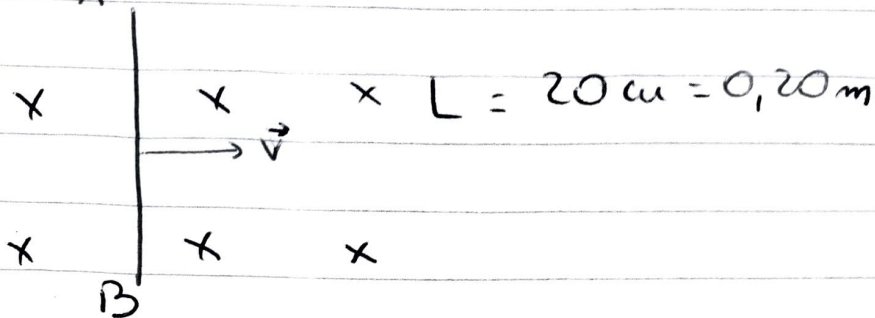 x x x L = 20 cm = 0,20 m
v
x x x
B